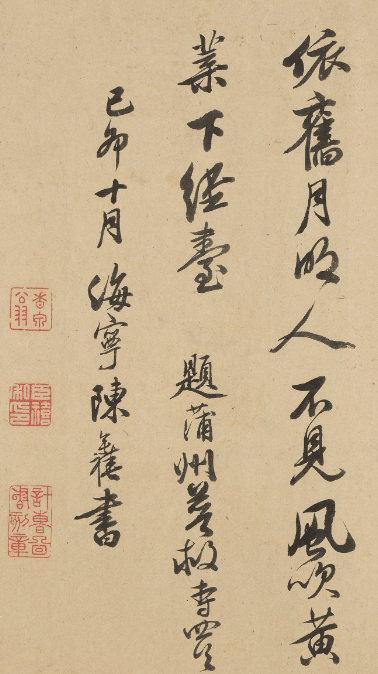 依舊月明人不見風吹黃
葉下經臺 題蒲州普救寺
己卯十月海寧陳奕禧書
香泉公羽